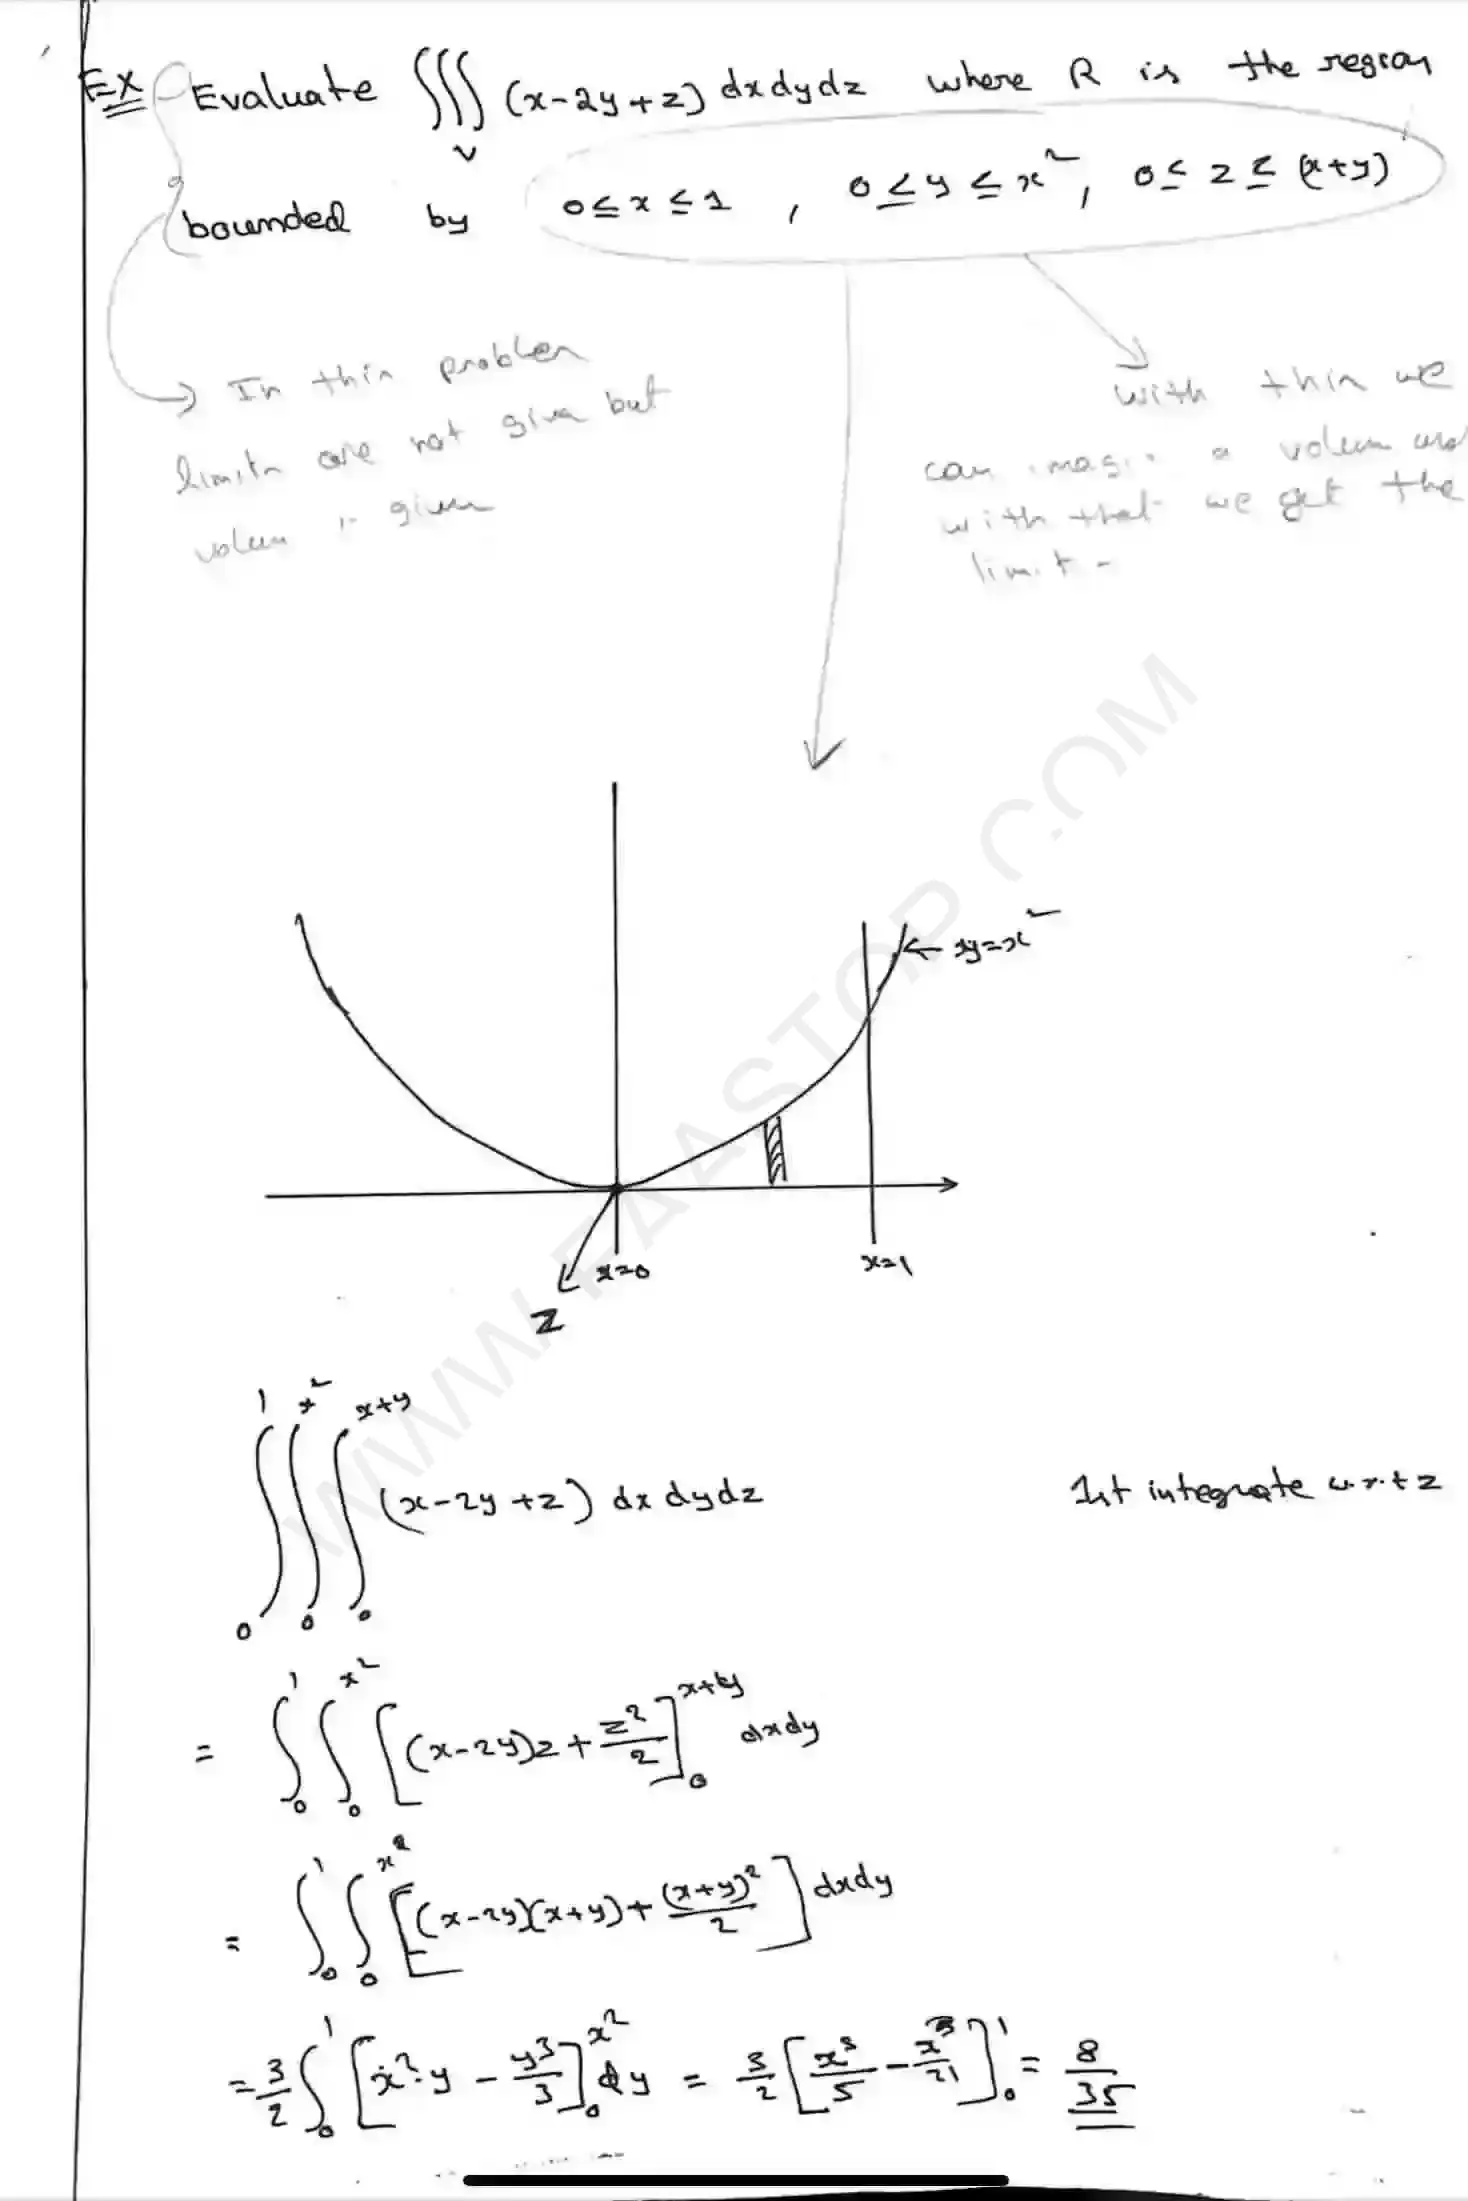 EX Evaluate ∭_V (x-2y+z) dxdydz where R is the region
bounded by 0≤x≤1 , 0≤y≤x², 0≤z≤(x+y)
→ In thin problem
limits are not give but
volum is given
with thin we
can imagi a volum and
with that we get the
limit -
←y=x²
x=0
x=1
Z
∫₀¹ ∫₀^{x²} ∫₀^{x+y} (x-2y+z) dx dydz 1st integrate w.r.t z
= ∫₀¹ ∫₀^{x²} [(x-2y)z + z²/2]₀^{x+y} dxdy
= ∫₀¹ ∫₀^{x²} [(x-2y)(x+y) + (x+y)²/2] dxdy
= 3/2 ∫₀¹ [x²·y - y³/3]₀^{x²} dy = 3/2 [x⁵/5 - x⁷/21]₀¹ = 8/35
WWW.FAASTOP.COM